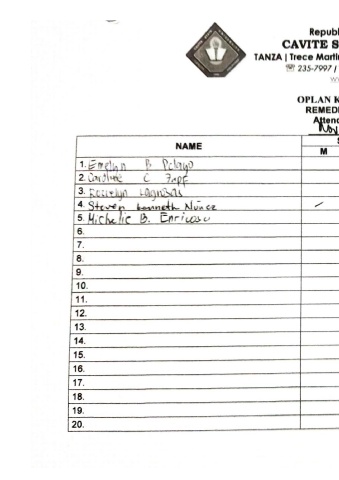 Republ
CAVITE S
TANZA | Trece Martir
☏ 235-7997 |
OPLAN K
REMEDI
Attend
Nov
NAME
S
M
1. Emelyn B Pelayo
2. Caroline C
3. Roselyn Lagnisas
4. Steven Kenneth Nuñez ✓
5. Michelle B. Enricoso
6.
7.
8.
9.
10.
11.
12.
13.
14.
15.
16.
17.
18.
19.
20.